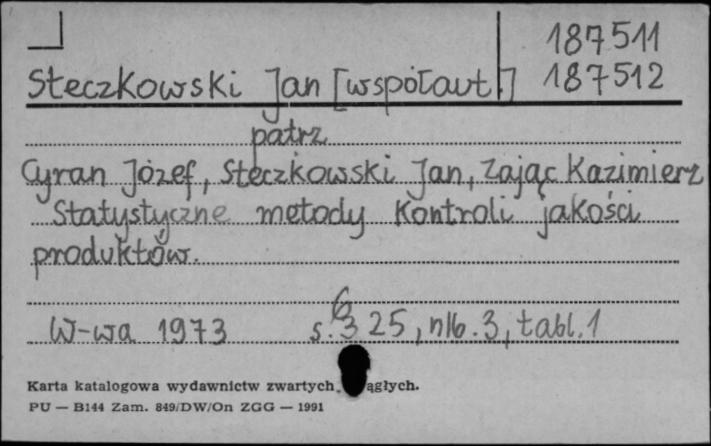 187511
Steczkowski Jan [współaut.] 187512
patrz
Cyran Józef, Steczkowski Jan, Zając Kazimierz
Statystyczne metody kontroli jakości
produktów.
W-wa 1973 s. 325, nlb. 3, tabl. 1
Karta katalogowa wydawnictw zwartych ągłych.
PU — B144 Zam. 849/DW/On ZGG — 1991